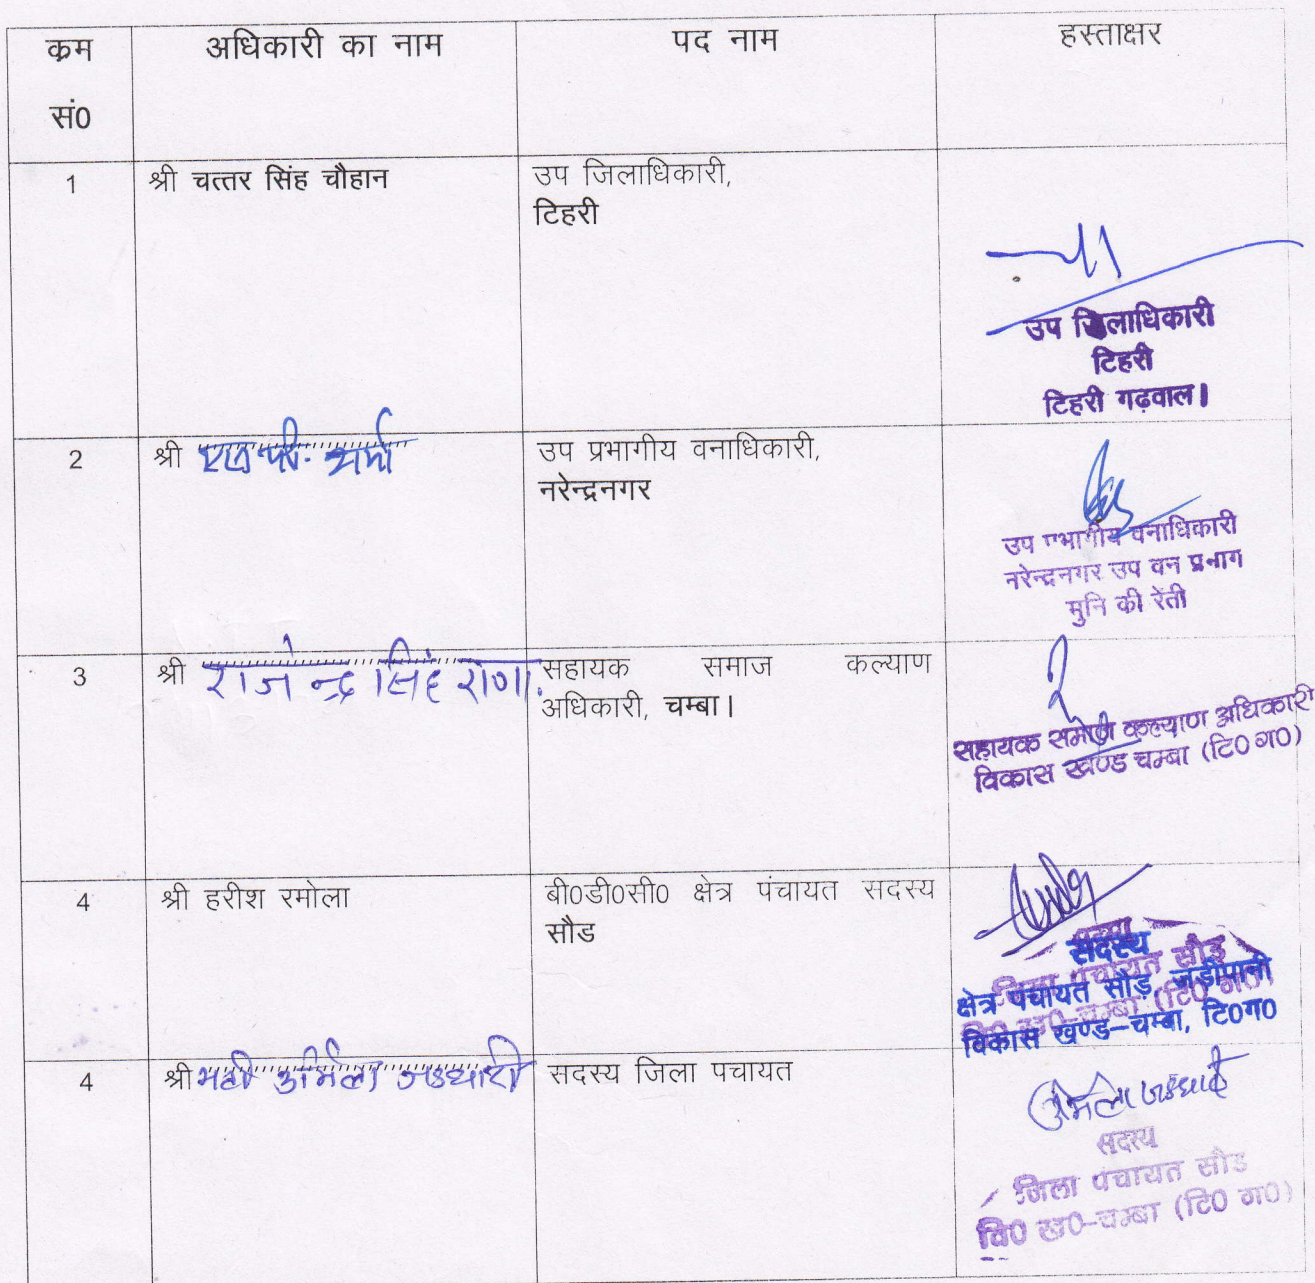 क्रम अधिकारी का नाम पद नाम हस्ताक्षर
सं0
1 श्री चत्तर सिंह चौहान उप जिलाधिकारी,
टिहरी
उप जिलाधिकारी
टिहरी
टिहरी गढ़वाल।
2 श्री एस पी. शर्मा उप प्रभागीय वनाधिकारी,
नरेन्द्रनगर
उप प्रभागीय वनाधिकारी
नरेन्द्रनगर उप वन प्रभाग
मुनि की रेती
3 श्री राजेन्द्र सिंह राणा. सहायक समाज कल्याण
अधिकारी, चम्बा।
सहायक समाज कल्याण अधिकारी
विकास खण्ड चम्बा (टि0 ग0)
4 श्री हरीश रमोला बी0डी0सी0 क्षेत्र पंचायत सदस्य
सौड
सदस्य
क्षेत्र पंचायत सौड़, जड़ीपानी
विकास खण्ड–चम्बा, टि0ग0
सदस्य
जिला पंचायत सौड
वि0 ख0-चम्बा (टि0 ग0)
4 श्रीमती उर्मिला जडधारी सदस्य जिला पचायत
उर्मिला जडधारी
सदस्य
जिला पंचायत सौड
वि0 ख0-चम्बा (टि0 ग0)